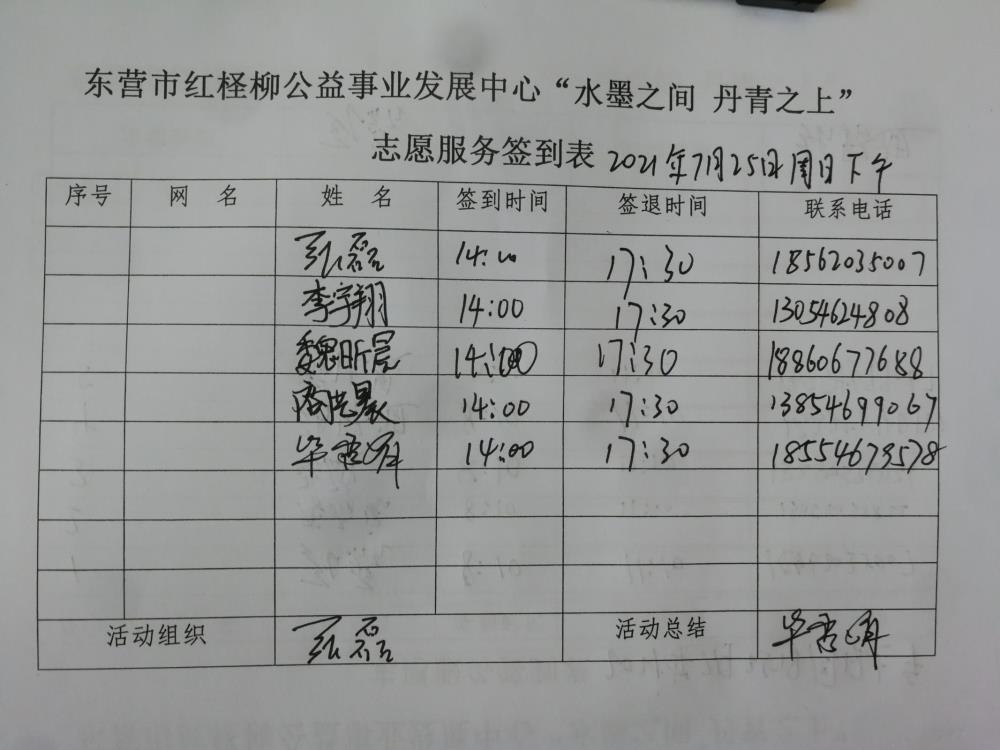 东营市红柽柳公益事业发展中心“水墨之间 丹青之上”
志愿服务签到表 2021年7月25日周日下午
序号 网 名 姓 名 签到时间 签退时间 联系电话
张磊 14:00 17:30 18562035007
李宇翔 14:00 17:30 13054624808
魏昕晨 14:00 17:30 18860677688
14:00 17:30 13854699067
毕 14:00 17:30 18554679578
活动组织 张磊 活动总结 毕